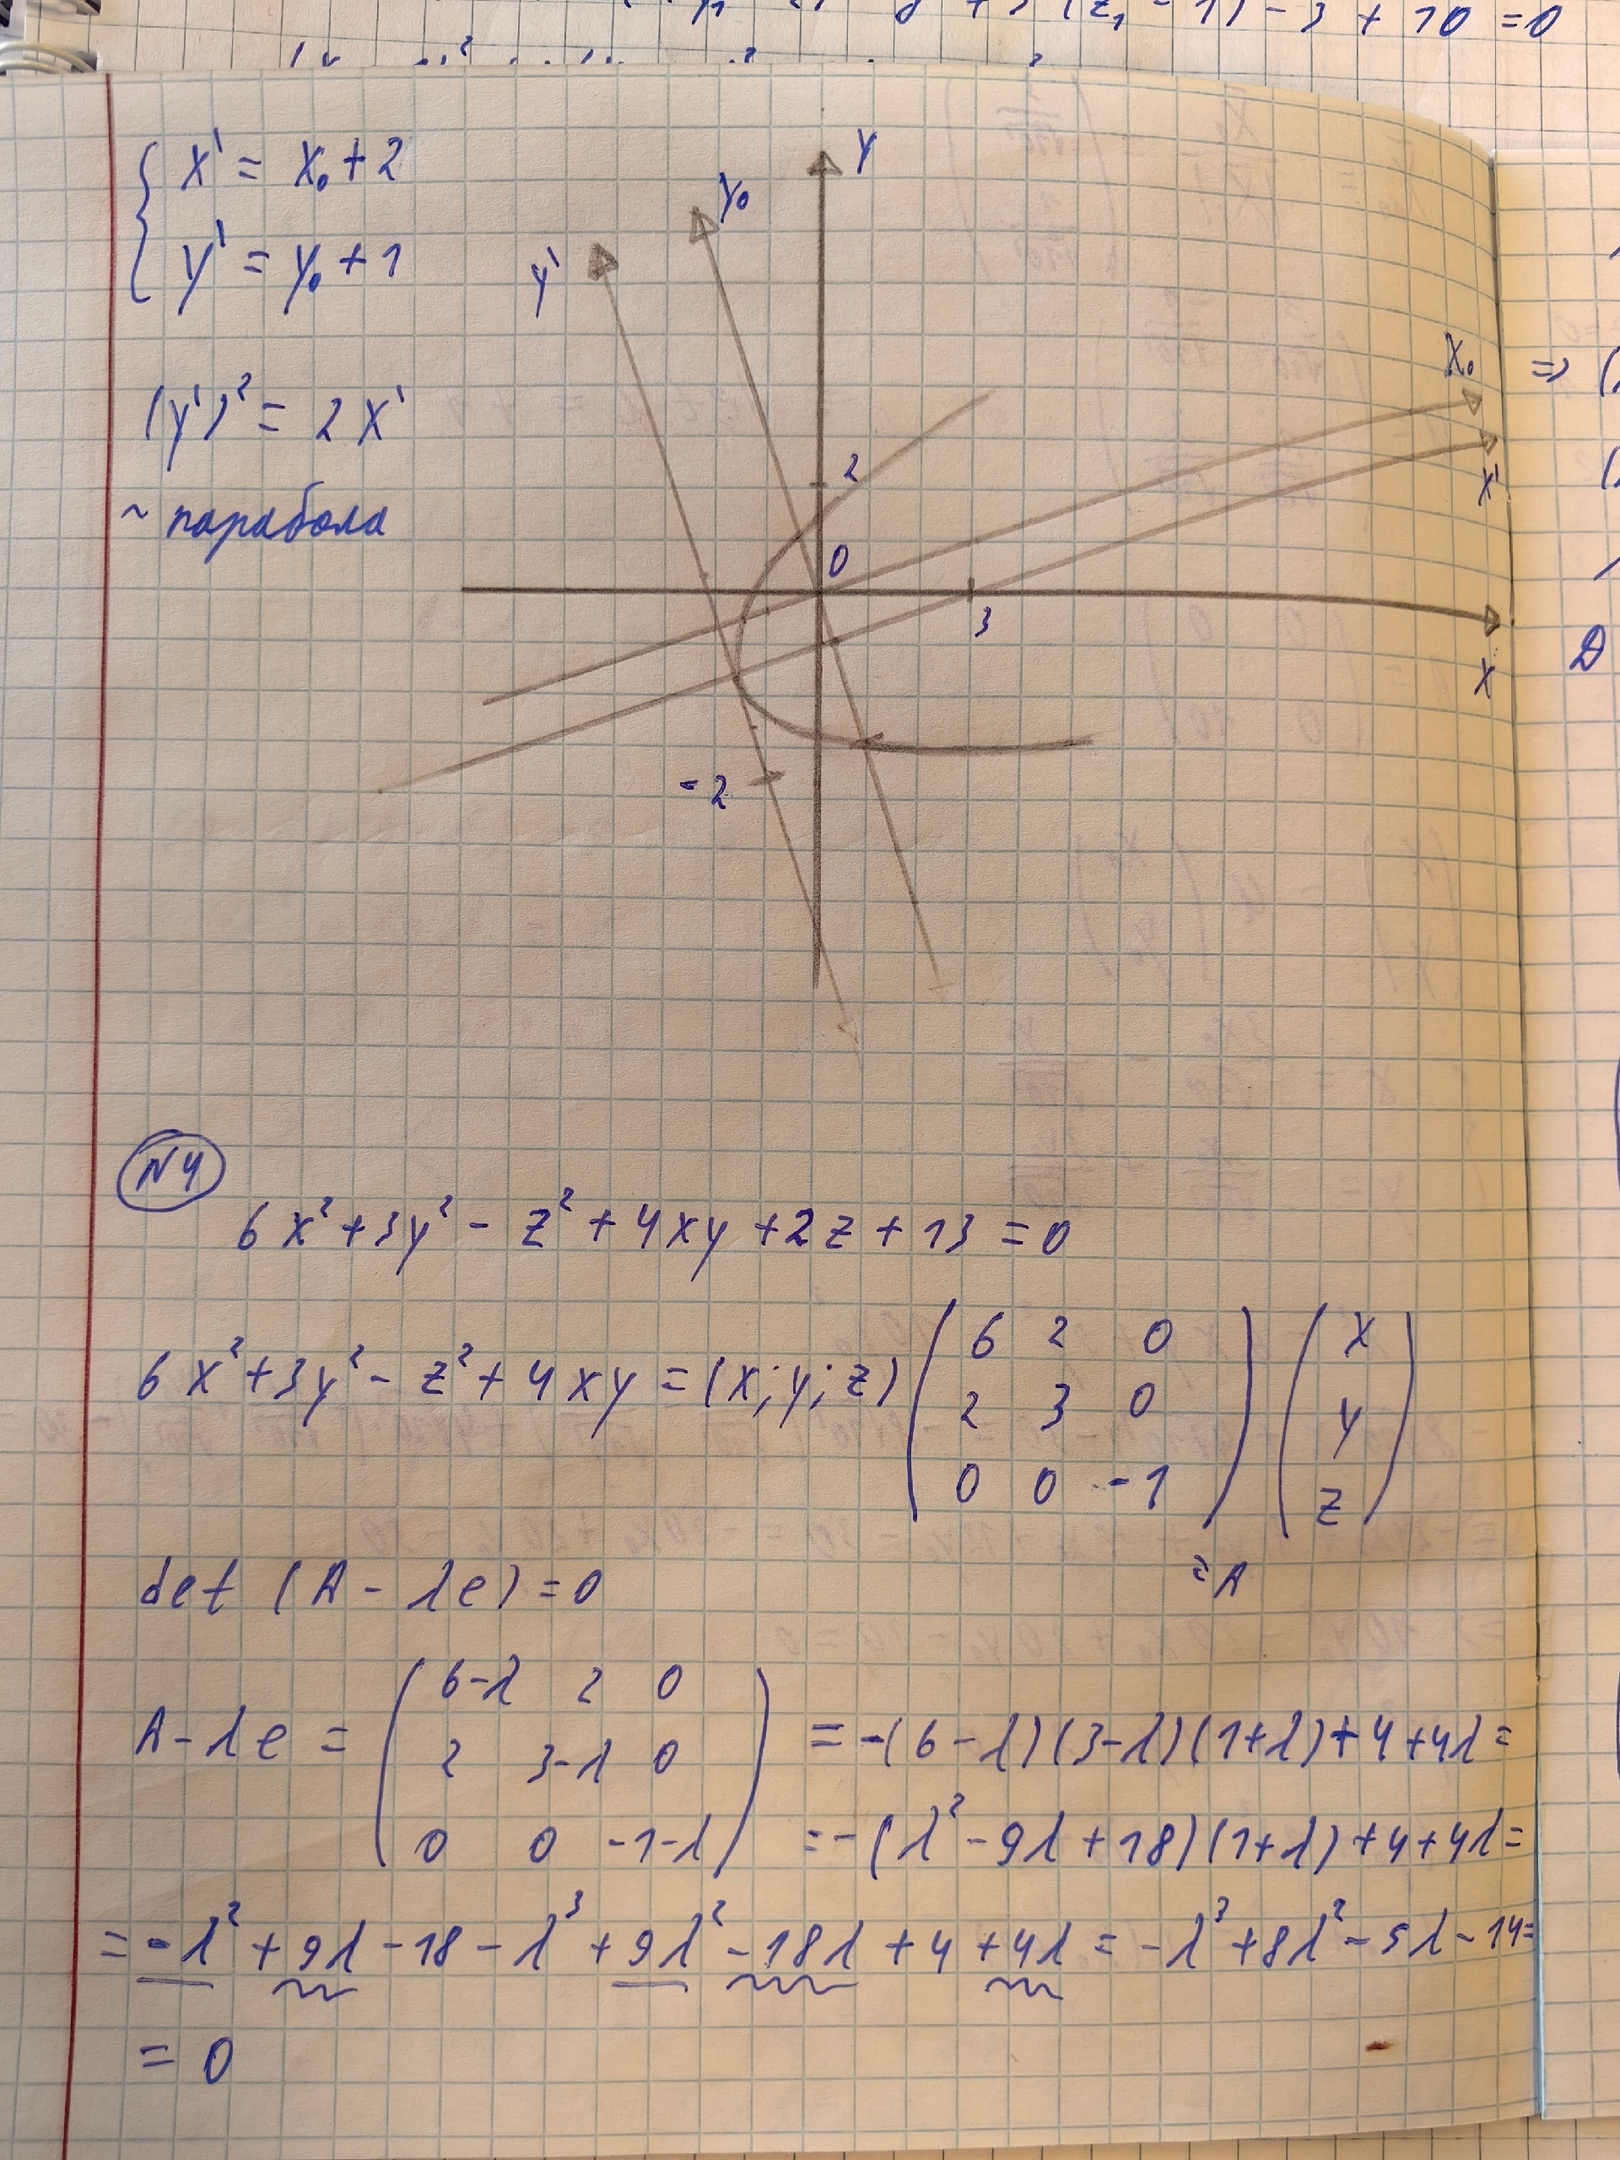 + 3 (z₁ - 1) - 3 + 10 = 0
x' = x₀ + 2
y' = y₀ + 1
(y')² = 2x'
~ парабола
y
y₀
y'
x₀
x'
2
0
3
x
-2
N4
6x² + 3y² - z² + 4xy + 2z + 13 = 0
6x² + 3y² - z² + 4xy = (x; y; z) ( 6 2 0 ) ( x )
2 3 0 y
0 0 -1 z
= A
det (A - λe) = 0
A - λe = ( 6-λ 2 0 ) = -(6-λ)(3-λ)(1+λ) + 4 + 4λ =
2 3-λ 0
0 0 -1-λ = -(λ² - 9λ + 18)(1+λ) + 4 + 4λ =
= -λ² + 9λ - 18 - λ³ + 9λ² - 18λ + 4 + 4λ = -λ³ + 8λ² - 5λ - 14 =
= 0
=> (
D